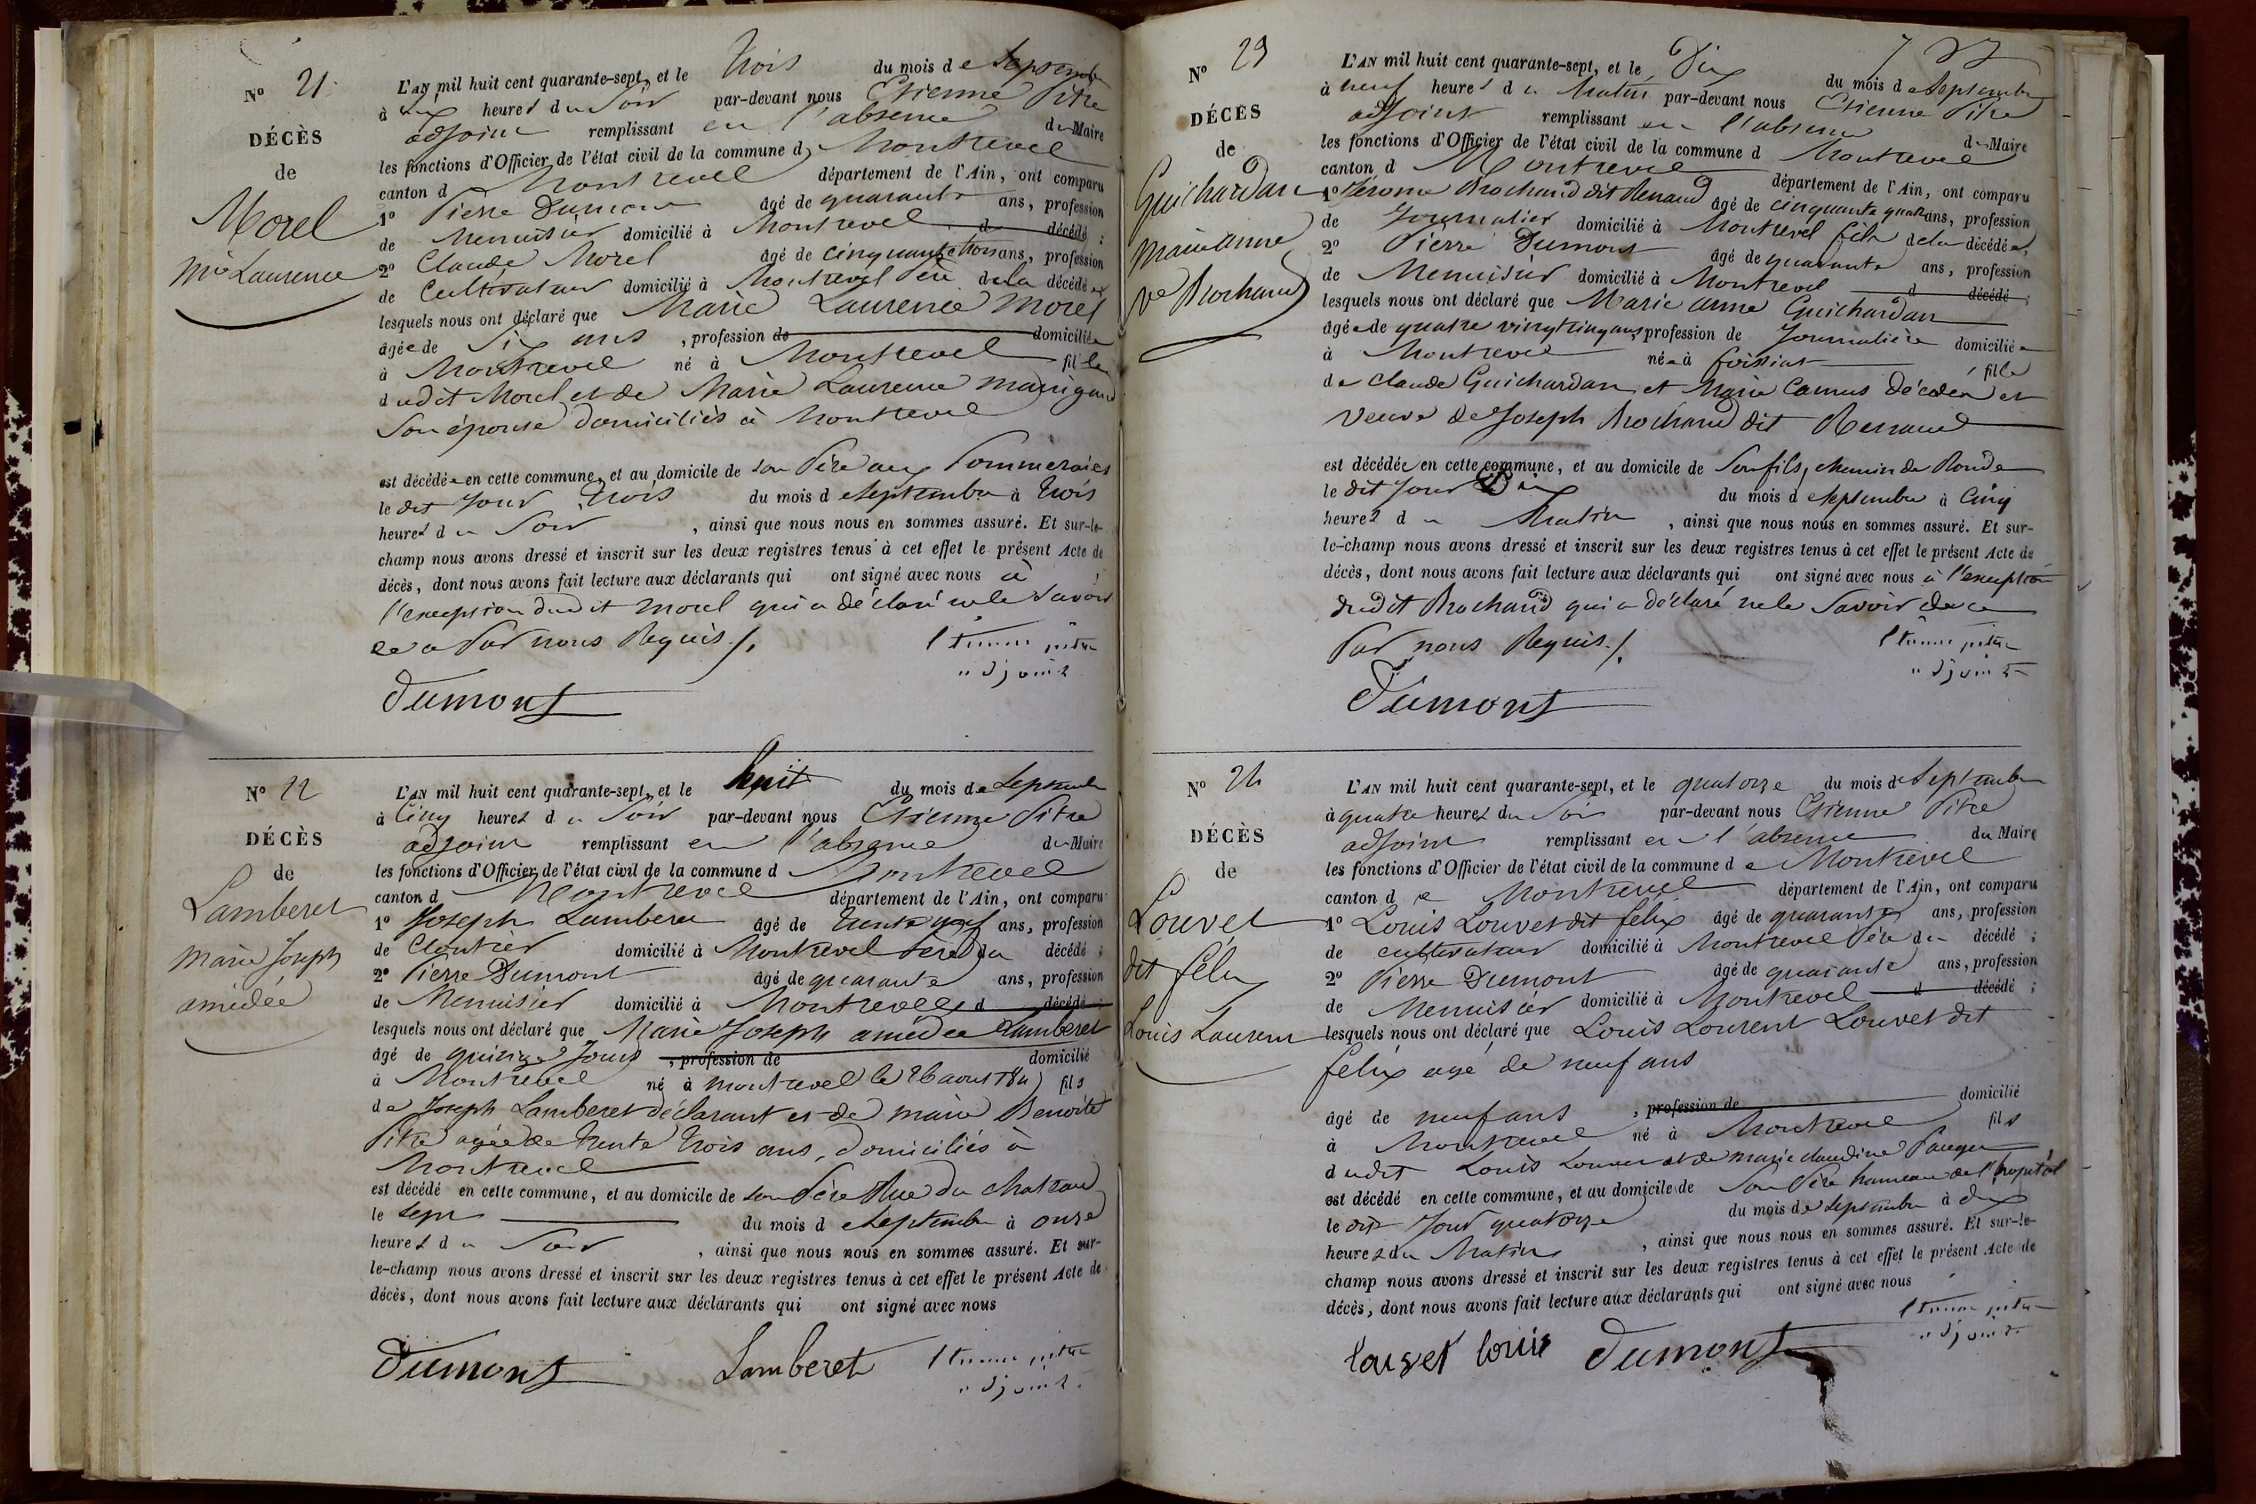 N° 21.
DÉCÈS
de
Morel
Mie Laurence
L'AN mil huit cent quarante-sept, et le trois du mois de Septembre
à six heures du Soir par-devant nous Etienne Pitre
adjoint remplissant en l'absence du Maire
les fonctions d'Officier de l'état civil de la commune d Montrevel
canton d Montrevel département de l'Ain, ont comparu
1° Pierre Dumont âgé de quarante ans, profession
de Menuisier domicilié à Montrevel d décédé ;
2° Claude Morel âgé de cinquante trois ans, profession
de Cultivateur domicilié à Montrevel Père de la décédée
lesquels nous ont déclaré que Marie Laurence Morel
âgée de Six ans , profession de domiciliée
à Montrevel né à Montrevel fille
dudit Morel et de Marie Laurence
Son épouse domiciliés à Montrevel
est décédée en cette commune, et au domicile de son Père aux Pommeraies
le dit jour trois du mois de Septembre à trois
heures du Soir , ainsi que nous nous en sommes assuré. Et sur-le-
champ nous avons dressé et inscrit sur les deux registres tenus à cet effet le présent Acte de
décès, dont nous avons fait lecture aux déclarants qui ont signé avec nous à
l'exception dudit Morel qui a déclaré ne le Savoir
de ce Par nous Requis ./.
Etienne pitre
adjoint
Dumont
N° 22
DÉCÈS
de
Lamberet
Marie Joseph
amédée
L'AN mil huit cent quarante-sept, et le huit du mois de Septembre
à Cinq heures du Soir par-devant nous Etienne Pitre
adjoint remplissant en l'absence du Maire
les fonctions d'Officier de l'état civil de la commune d Montrevel
canton d Montrevel département de l'Ain, ont comparu
1° Joseph Lamberet âgé de trente neuf ans, profession
de Cloutier domicilié à Montrevel Père du décédé ;
2° Pierre Dumont âgé de quarante ans, profession
de Menuisier domicilié à Montrevel d décédé
lesquels nous ont déclaré que Marie Joseph amédée Lamberet
âgé de quinze jours , profession de domicilié
à Montrevel né à montrevel le 26 aout 1847 fils
de Joseph Lamberet déclarant et de marie Benoite
Pitre agée de trente trois ans, domiciliés à
Montrevel
est décédé en cette commune, et au domicile de son Père Rue du chateau
le sept du mois de Septembre à onze
heures du Soir , ainsi que nous nous en sommes assuré. Et sur-
le-champ nous avons dressé et inscrit sur les deux registres tenus à cet effet le présent Acte de
décès, dont nous avons fait lecture aux déclarants qui ont signé avec nous
Dumont Lamberet Etienne pitre
adjoint
N° 23
DÉCÈS
de
Guichardan
Marie anne
ve Brochand
L'AN mil huit cent quarante-sept, et le Dix du mois de Septembre
à neuf heures du Matin par-devant nous Etienne Pitre
adjoint remplissant en l'absence du Maire
les fonctions d'Officier de l'état civil de la commune d Montrevel
canton d Montrevel département de l'Ain, ont comparu
1° Jérome Brochand dit Renaud âgé de cinquante quatre ans, profession
de Journalier domicilié à Montrevel fils de la décédée ;
2° Pierre Dumont âgé de quarante ans, profession
de Menuisier domicilié à Montrevel d décédé ;
lesquels nous ont déclaré que Marie anne Guichardan
âgée de quatre vingt cinq ans, profession de Journalière domiciliée
à Montrevel née à foissiat fille
de Claude Guichardan et Marie Camus décédés et
veuve de Joseph Brochand dit Renaud
est décédée en cette commune, et au domicile de Son fils, chemin de Ronde
le dit jour Dix du mois de Septembre à Cinq
heures du Matin , ainsi que nous nous en sommes assuré. Et sur-
le-champ nous avons dressé et inscrit sur les deux registres tenus à cet effet le présent Acte de
décès, dont nous avons fait lecture aux déclarants qui ont signé avec nous à l'exception
dudit Brochand qui a déclaré ne le Savoir de ce
Par nous Requis ./.
Etienne pitre
adjoint
Dumont
N° 24
DÉCÈS
de
Louvet
dit félix
Louis Laurent
L'AN mil huit cent quarante-sept, et le quatorze du mois de Septembre
à quatre heures du Soir par-devant nous Etienne Pitre
adjoint remplissant en l'absence du Maire
les fonctions d'Officier de l'état civil de la commune de Montrevel
canton de Montrevel département de l'Ain, ont comparu
1° Louis Louvet dit félix âgé de quarante ans, profession
de cultivateur domicilié à Montrevel Père du décédé ;
2° Pierre Dumont âgé de quarante ans, profession
de Menuisier domicilié à Montrevel d décédé ;
lesquels nous ont déclaré que Louis Laurent Louvet dit
félix agé de neuf ans
âgé de neuf ans , profession de domicilié
à Montrevel né à Montrevel fils
dudit Louis Louvet et de marie claudine
est décédé en cette commune, et au domicile de Son Père hameau de l'hopital
le dit Jour quatorze du mois de Septembre à dix
heures du Matin , ainsi que nous nous en sommes assuré. Et sur-le-
champ nous avons dressé et inscrit sur les deux registres tenus à cet effet le présent Acte de
décès, dont nous avons fait lecture aux déclarants qui ont signé avec nous
Etienne pitre
adjoint
louvet louis Dumont